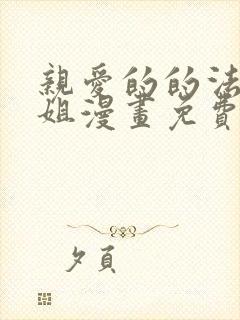 親愛的的法
姐漫畫免費
夕頁